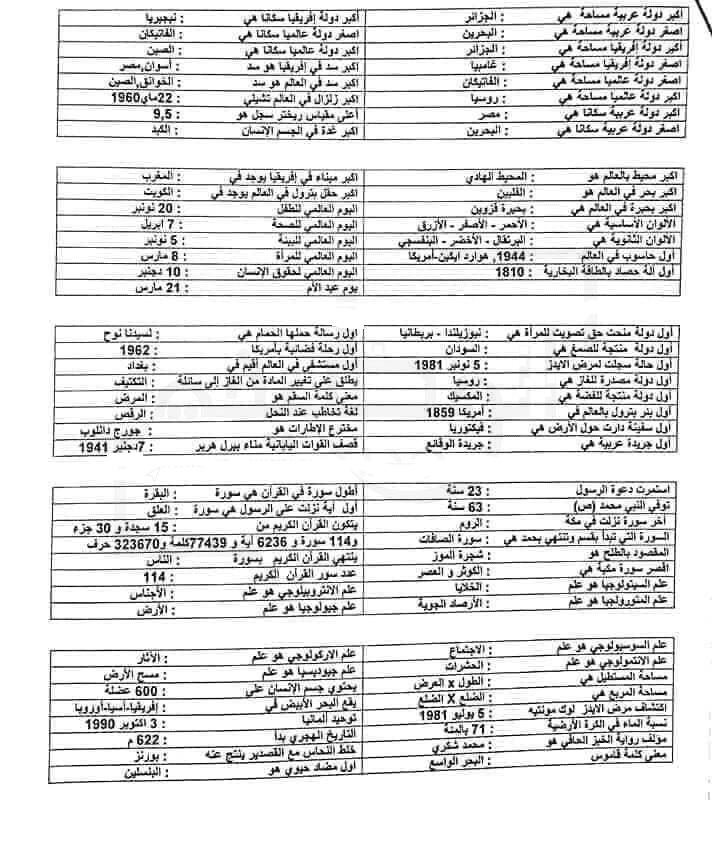 أكبر دولة عربية مساحة هي : الجزائر
أصغر دولة عربية مساحة هي : البحرين
أكبر دولة إفريقيا مساحة هي : الجزائر
أصغر دولة إفريقيا مساحة هي : غامبيا
أصغر دولة عالميا مساحة هي : الفاتيكان
أكبر دولة عالميا مساحة هي : روسيا
أكبر دولة عربية سكانا هي : مصر
أصغر دولة عربية سكانا هي : البحرين
أكبر دولة إفريقيا سكانا هي : نيجيريا
أصغر دولة عالميا سكانا هي : الفاتيكان
أكبر دولة عالميا سكانا هي : الصين
أكبر سد في إفريقيا هو سد : أسوان,مصر
أكبر سد في العالم هو سد : الخوانق,الصين
أكبر زلزال في العالم تشيلي : 22ماي1960
أعلى مقياس ريختر سجل هو : 9,5
أكبر غدة في الجسم الإنسان : الكبد
أكبر محيط بالعالم هو : المحيط الهادي
أكبر بحر في العالم هو : الفلبين
أكبر بحيرة في العالم هي : بحيرة قزوين
الألوان الأساسية هي : الأحمر - الأصفر - الأزرق
الألوان الثانوية هي : البرتقال - الأخضر - البنفسجي
أول حاسوب في العالم : 1944, هوارد ايكين-أمريكا
أول آلة حصاد بالطاقة البخارية : 1810
أكبر ميناء في إفريقيا يوجد في : المغرب
أكبر حقل بترول في العالم يوجد في : الكويت
اليوم العالمي للطفل : 20 نونبر
اليوم العالمي للصحة : 7 أبريل
اليوم العالمي للبيئة : 5 نونبر
اليوم العالمي للمرأة : 8 مارس
اليوم العالمي لحقوق الإنسان : 10 دجنبر
يوم عيد الأم : 21 مارس
أول دولة منحت حق تصويت للمرأة هي : نيوزيلندا - بريطانيا
أول دولة منتجة للصمغ هي : السودان
أول حالة سجلت لمرض الايدز : 5 نونبر 1981
أول دولة مصدرة للغاز هي : روسيا
أول دولة منتجة للفضة هي : المكسيك
أول بئر بترول بالعالم في : أمريكا 1859
أول سفينة دارت حول الأرض هي : فيكتوريا
أول جريدة عربية هي : جريدة الوقائع
اول رسالة حملها الحمام هي : لسيدنا نوح
أول رحلة فضائية بأمريكا : 1962
أول مستشفى في العالم أقيم في : بغداد
يطلق على تغيير المادة من الغاز إلى سائلة : التكثيف
معنى كلمة السقم هو : المرض
لغة تخاطب عند النحل : الرقص
مخترع الإطارات هو : جورج دانلوب
قصف القوات اليابانية مناء بيرل هربر : 7دجنبر 1941
استمرت دعوة الرسول : 23 سنة
توفي النبي محمد (ص) : 63 سنة
آخر سورة نزلت في مكة : الروم
السورة التي تبدأ بقسم وتنتهي بحمد هي : سورة الصافات
المقصود بالطلح هو : شجرة الموز
أقصر سورة مكية هي : الكوثر و العصر
علم السيتولوجيا هو علم : الخلايا
علم المتورولجيا هو علم : الأرصاد الجوية
أطول سورة في القرآن هي سورة : البقرة
أول آية نزلت على الرسول هي سورة : العلق
يتكون القرآن الكريم من : 15 سجدة و 30 جزء
و114 سورة و 6236 آية و 77439كلمة و323670 حرف
ينتهي القرآن الكريم بسورة : الناس
عدد سور القرآن الكريم : 114
علم الانتروبيلوجي هو علم : الأجناس
علم جيولوجيا هو علم : الأرض
علم السوسيولوجي هو علم : الاجتماع
علم الانتمولوجي هو علم : الحشرات
مساحة المستطيل هي : الطول x العرض
مساحة المربع هي : الضلع X الضلع
اكتشاف مرض الايدز لوك مونتيه : 5 يوليو 1981
نسبة الماء في الكرة الأرضية : 71 بالمئة
مؤلف رواية الخبز الحافي هو : محمد شكري
معنى كلمة قاموس : البحر الواسع
علم الاركولوجي هو علم : الأثار
علم جيوديسيا هو علم : مسح الأرض
يحتوي جسم الإنسان على : 600 عضلة
يقع البحر الأبيض في : إفريقيا-آسيا-أوروبا
توحيد ألمانيا : 3 اكتوبر 1990
التاريخ الهجري بدأ : 622 م
خلط النحاس مع القصدير ينتج عنه : بورنز
أول مضاد حيوي هو : البنسلين